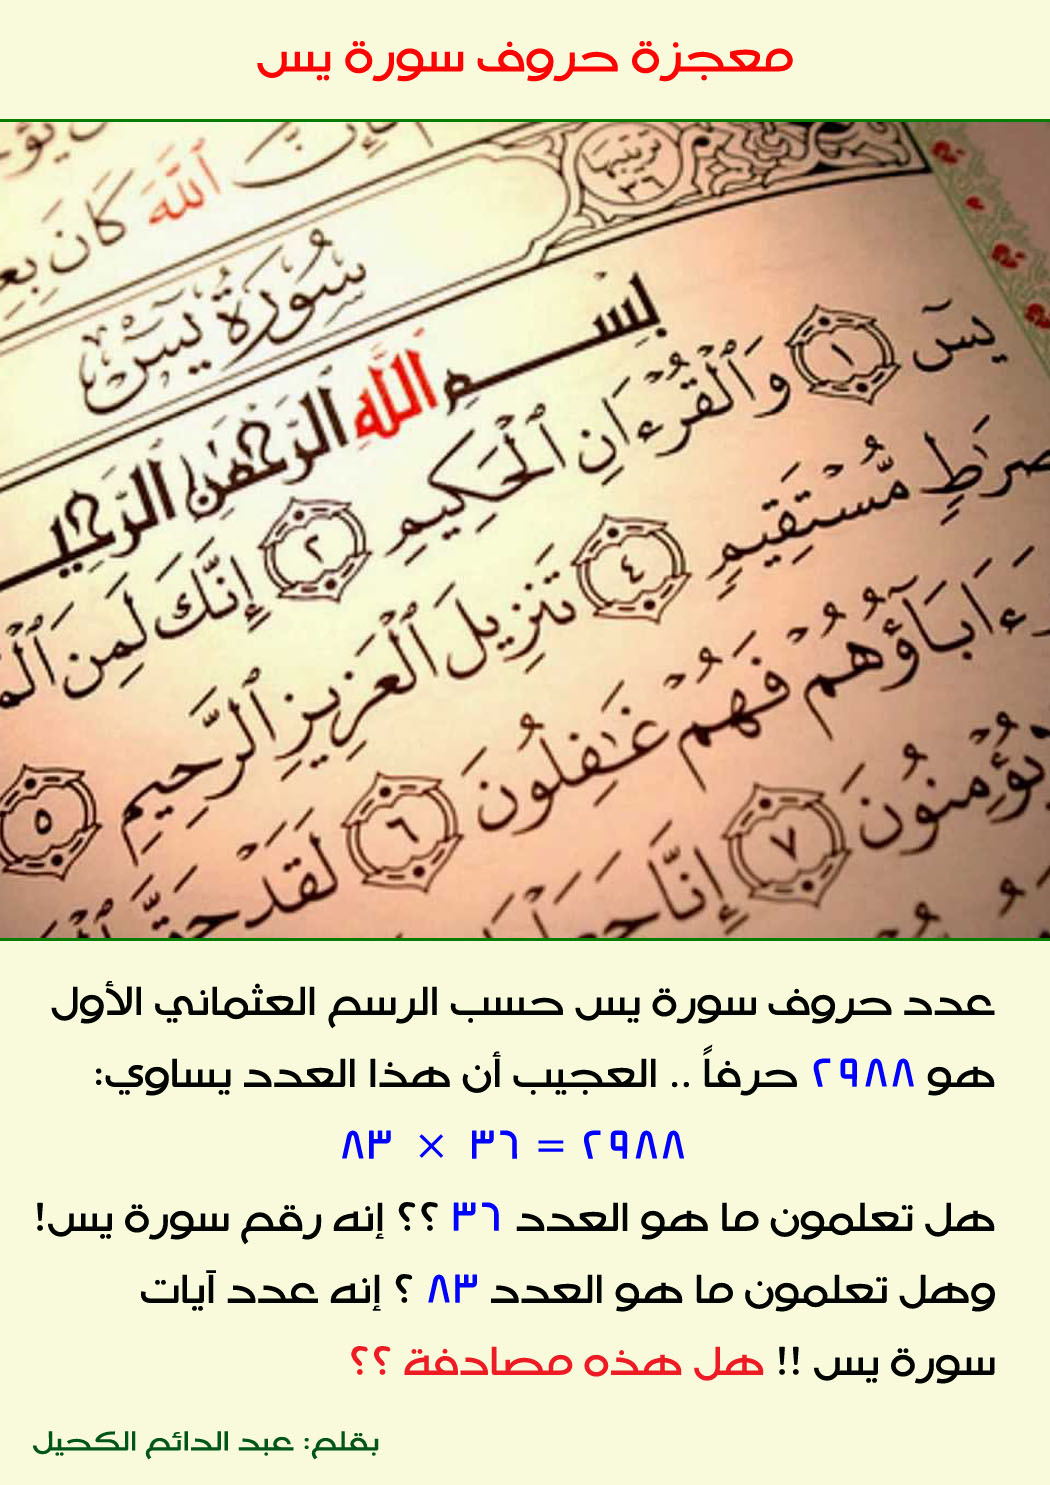 معجزة حروف سورة يس
ٱللَّهَ كَانَ
ترتيبها ٣٦
سُورَةُ يسٓ
بِسْمِ ٱللَّهِ ٱلرَّحْمَٰنِ ٱلرَّحِيمِ
يسٓ ١ وَٱلْقُرْءَانِ ٱلْحَكِيمِ ٢ إِنَّكَ لَمِنَ
صِرَٰطٍ مُّسْتَقِيمٍ ٤ تَنزِيلَ ٱلْعَزِيزِ ٱلرَّحِيمِ ٥
ءَابَآؤُهُمْ فَهُمْ غَٰفِلُونَ ٦ لَقَدْ حَقَّ
يُؤْمِنُونَ ٧ إِنَّا
عدد حروف سورة يس حسب الرسم العثماني الأول
هو ٢٩٨٨ حرفاً .. العجيب أن هذا العدد يساوي:
٢٩٨٨ = ٣٦ × ٨٣
هل تعلمون ما هو العدد ٣٦ ؟؟ إنه رقم سورة يس!
وهل تعلمون ما هو العدد ٨٣ ؟ إنه عدد آيات
سورة يس !! هل هذه مصادفة ؟؟
بقلم: عبد الدائم الكحيل